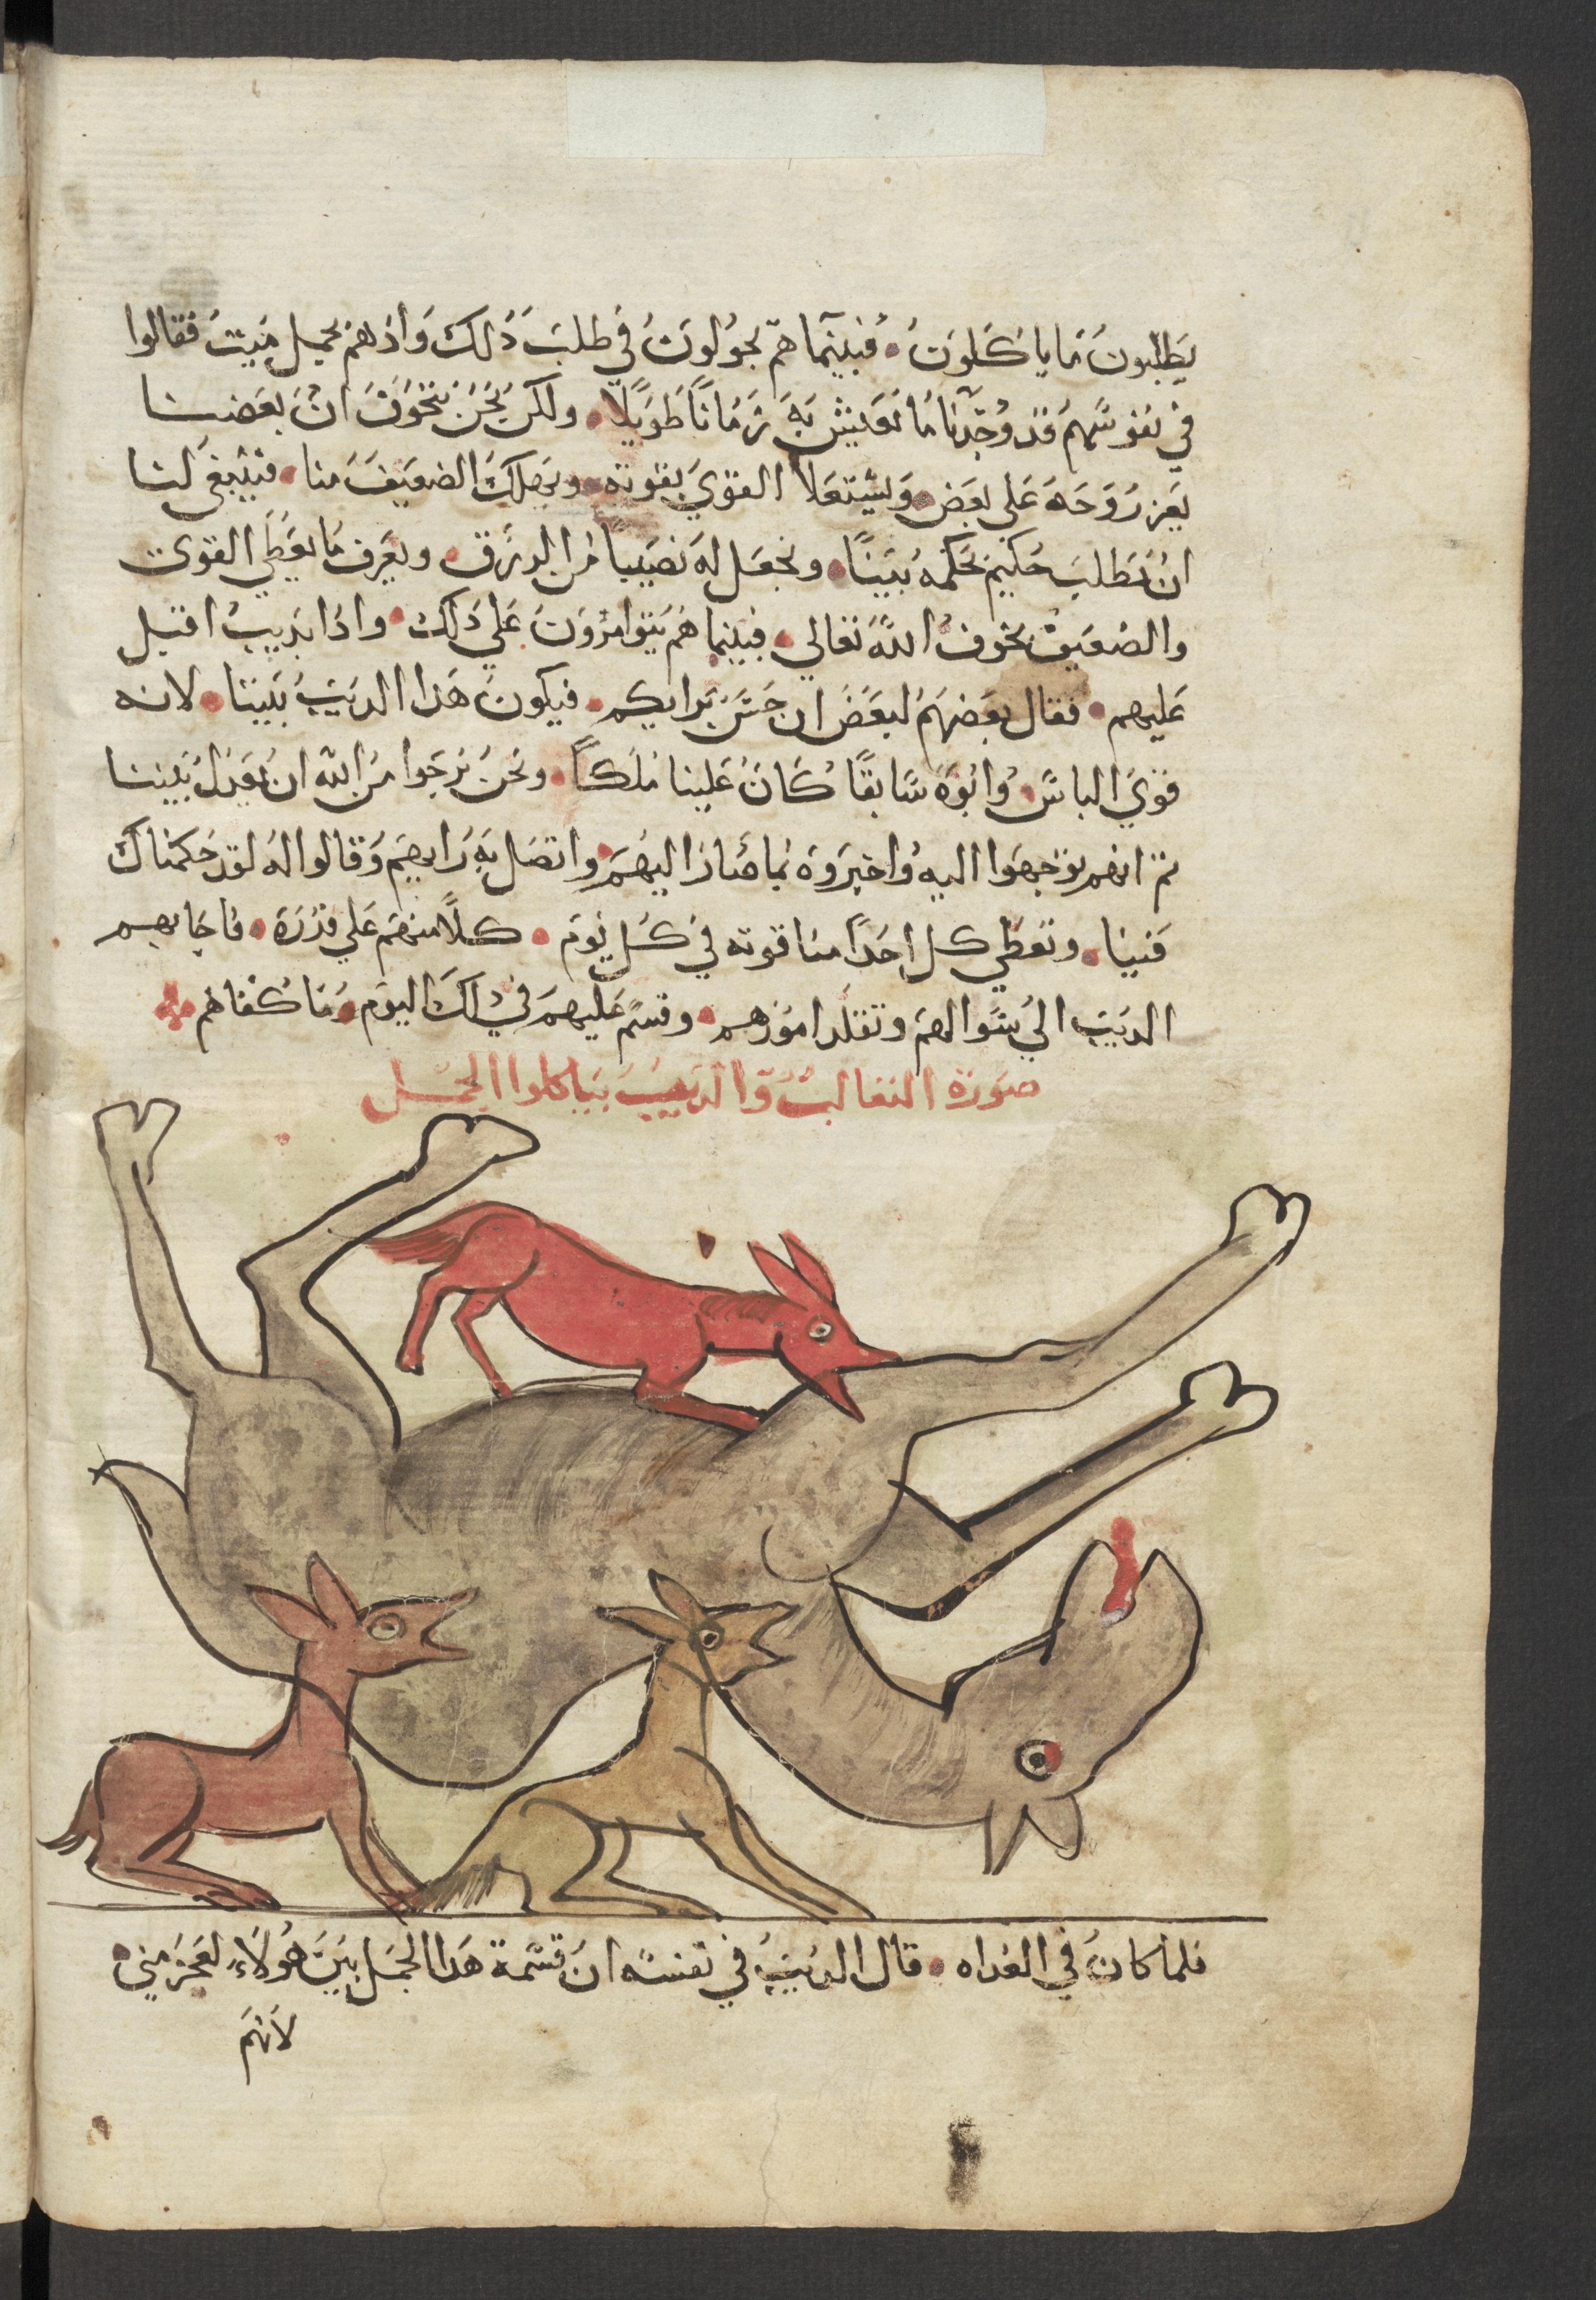 يطلبون ما ياكلون • فبينما هم يجولون في طلب ذلك واذ هم بجمل ميت فقالوا
في نفوسهم قد وجدنا ما نعيش به زمانا طويلا • ولكن نحن نتخوف ان بعضنا
يعز روحه على بعض • ويستعلا القوي بقوته • ويهلك الضعيف منا • فينبغي لنا
ان نطلب حكيم نحكمه بيننا • ونجعل له نصيبا من الرزق • ويعرف ما يعطي القوي
والضعيف بخوف الله تعالي • فبينما هم يتوامرون علي ذلك • واذا بديب اقبل
عليهم • فقال بعضهم لبعض ان حسن برايكم • فيكون هذا الديب بيننا • لانه
قوي الباس • وابوه سابقا كان علينا ملكا • ونحن نرجوا من الله ان يعدل بيننا
ثم انهم توجهوا اليه واخبروه بما صار اليهم • واتصل به رايهم وقالوا له لقد حكمناك
فينا • وتعطي كل احدا منا قوته في كل يوم • كلا منهم علي قدره • فاجابهم
الديب الي سوالهم وتقلد امورهم • وقسم عليهم في ذلك اليوم • وما كفاهم
صورة الثعالب والديب بياكلوا الجمل
فلما كان في الغداه • قال الديب في نفسه ان قسمة هذا الجمل بين هولاء لعجز مني •
لانهم